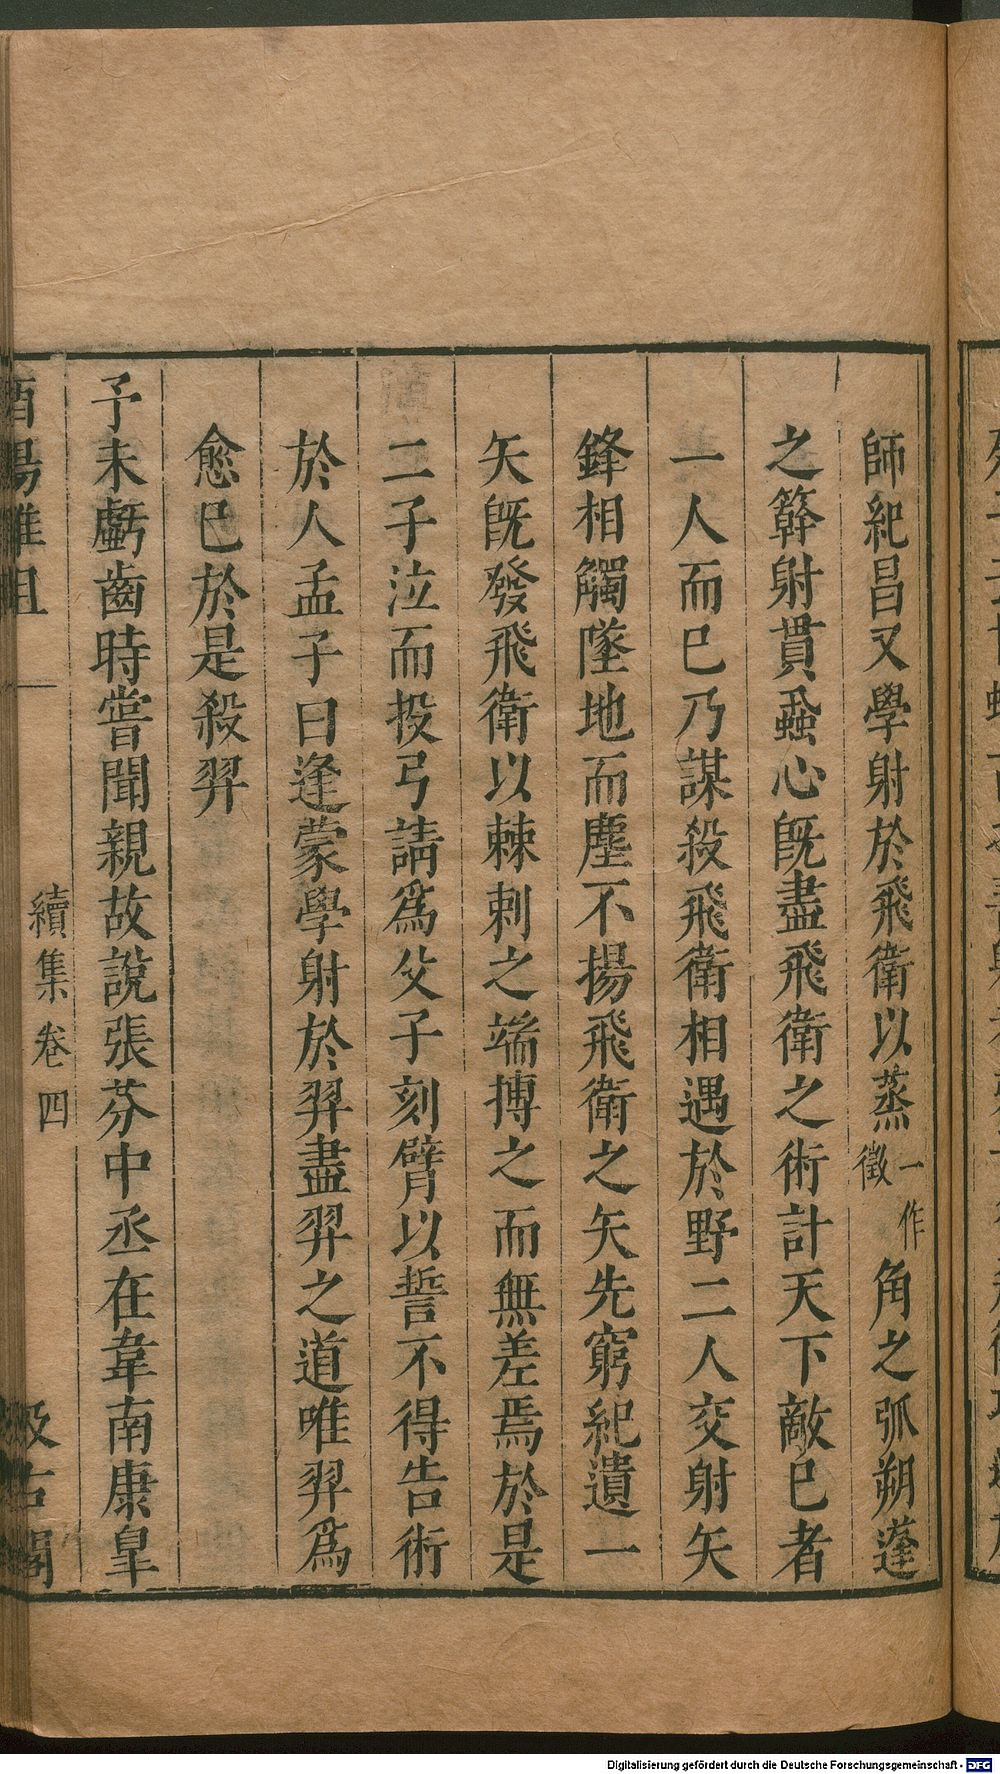 師紀昌又學射於飛衛以蒸一作徵角之弧朔蓬
之簳射貫蝨心旣盡飛衛之術計天下敵巳者
一人而巳乃謀殺飛衛相遇於野二人交射矢
鋒相觸墜地而塵不揚飛衛之矢先窮紀遺一
矢旣發飛衛以棘刺之端摶之而無差焉於是
二子泣而投弓請爲父子刻臂以誓不得告術
於人孟子曰逢蒙學射於羿盡羿之道唯羿爲
愈巳於是殺羿
予未虧齒時嘗聞親故說張芬中丞在韋南康皐
酉陽雜俎
續集卷四
汲古閣
Digitalisierung gefördert durch die Deutsche Forschungsgemeinschaft - DFG